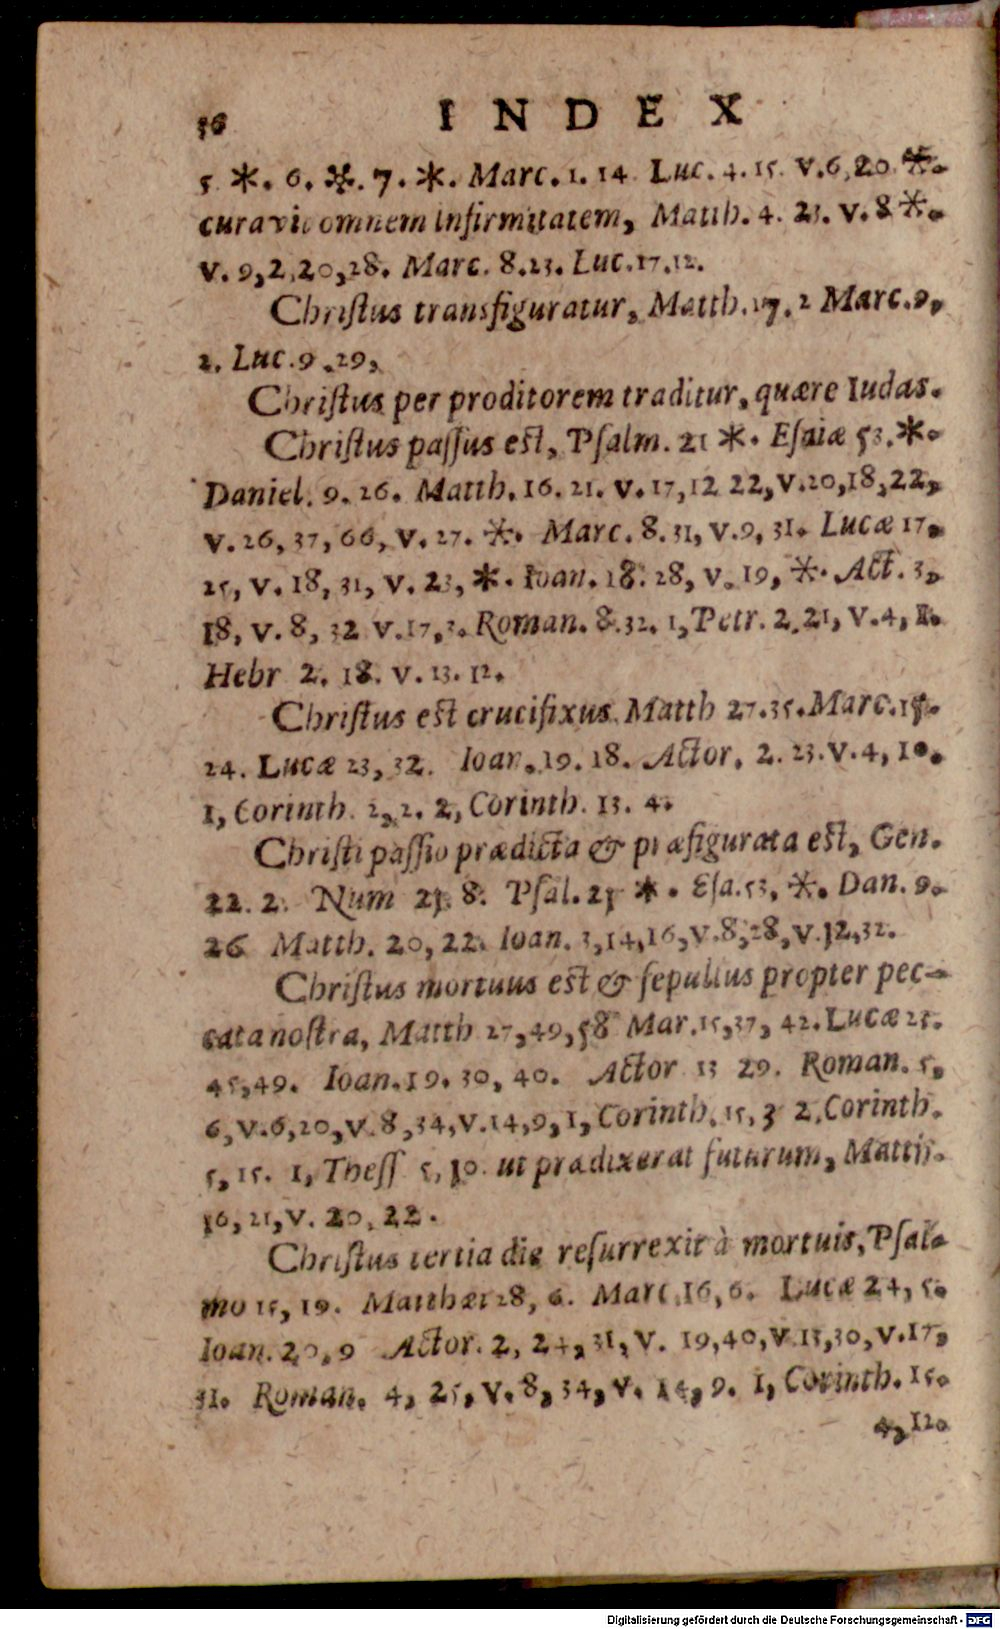 56 INDEX
5 *. 6. *. 7. *. Marc. 1. 14 Luc. 4. 15. V. 6, 20 *.
curavit omnem infirmitatem, Matth. 4. 23. V. 8 *.
V. 9, 2, 20, 28. Marc. 8. 23. Luc. 17. 12.
Chriſtus transfiguratur, Matth. 17. 2 Marc. 9,
2. Luc. 9. 29,
Chriſtus per proditorem traditur, quære Iudas.
Chriſtus paſſus eſt, Pſalm. 21 *. Eſaiæ 53. *.
Daniel. 9. 26. Matth. 16. 21. V. 17, 12 22, V. 20, 18, 22,
V. 26, 37, 66, V. 27. *. Marc. 8. 31, V. 9, 31. Lucæ 17,
25, V. 18, 31, V. 23, *. Ioan. 18. 28, V. 19, *. Act. 3,
18, V. 8, 32 V. 17, 3. Roman. 8. 32. 1, Petr. 2. 21, V. 4, 1.
Hebr 2. 18. V. 13. 12.
Chriſtus eſt crucifixus. Matth 27. 35. Marc. 15.
24. Lucæ 23, 32. Ioan. 19. 18. Actor. 2. 23. V. 4, 10.
1, Corinth. 2, 2. 2, Corinth. 13. 4.
Chriſti paſſio prædicta & præfigurata eſt, Gen.
22. 2. Num 21. 8. Pſal. 21 *. Eſa. 53, *. Dan. 9.
26 Matth. 20, 22. Ioan. 3, 14, 16, V. 8, 28, V. 12, 32.
Chriſtus mortuus eſt & ſepultus propter pec-
cata noſtra, Matth 27, 49, 58 Mar. 15, 37, 42. Lucæ 23.
45, 49. Ioan. 19. 30, 40. Actor 13 29. Roman. 5,
6, V. 6, 20, V. 8, 34, V. 14, 9, 1, Corinth. 15, 3 2, Corinth.
5, 15. 1, Theſſ 5, 10. ut prædixerat futurum, Matth.
16, 21, V. 20, 22.
Chriſtus tertia die reſurrexit à mortuis, Pſal-
mo 15, 19. Matthæi 28, 6. Marc. 16, 6. Lucæ 24, 5.
Ioan. 20, 9 Actor. 2, 24, 31, V. 19, 40, V. 13, 30, V. 17,
31. Roman. 4, 25, V. 8, 34, V. 14, 9. 1, Corinth. 15.
4, 12.
Digitalisierung gefördert durch die Deutsche Forschungsgemeinschaft - DFG